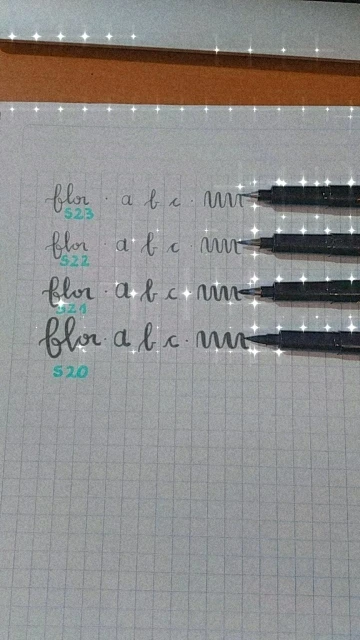 flor · a b c ·
S23
flor · a b c ·
S22
flor · a b c ·
S21
flor · a b c ·
S20